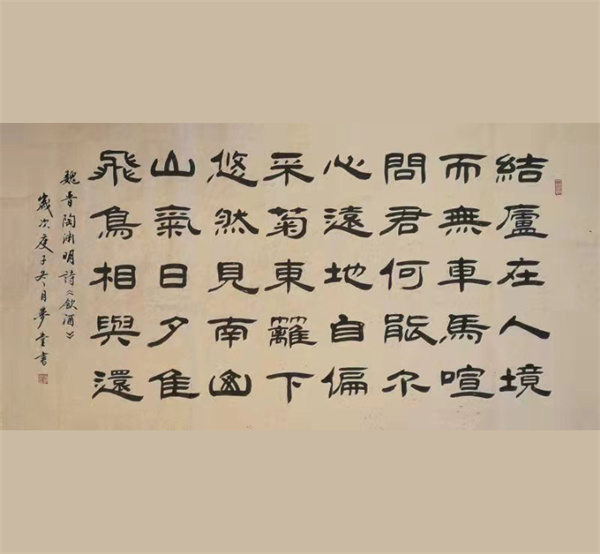 結廬在人境
而無車馬喧
問君何能尔
心遠地自偏
采菊東籬下
悠然見南山
山氣日夕佳
飛鳥相與還
魏晋陶渊明詩《飲酒》
歲次庚子冬月夢書